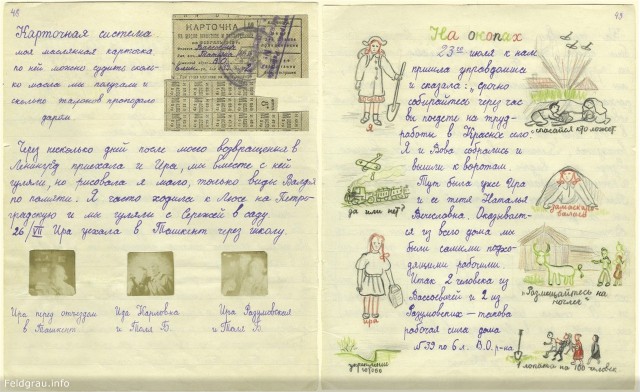 48
Карточная система
моя масляная карточка,
по ней можно судить сколь-
ко масла мы получали и
сколько талонов пропадало
даром.
КАРТОЧКА
Через несколько дней после моего возвращения в
Ленинград приехала и Ира, мы вместе с ней
гуляли, но рисовала я мало, только виды Валдая
по памяти. Я часто ходила к Люсе на Петро-
градскую и мы гуляли с Сережей в саду.
26/VII Ира уехала в Ташкент через школу.
Ира перед отъездом
в Ташкент
Ида Карловна
и Толя Б.
Ира Разумовская
и Толя Б.
49
На окопах
23го июля к нам
пришла управдомша
и сказала: „срочно
собирайтесь через час
вы поедете на труд-
работы в Красное село.
Я и Вова собрались и
вышли к воротам.
Тут была уже Ира
и её тётя Наталья
Вячеславна. Оказывает-
ся из всего дома мы
были самыми подхо-
дящими рабочими.
Итак 2 человека из
Вассоевичей и 2 из
Разумовских — такова
рабочая сила дома
№39 по 6 л. В.О. р-на
Я
да или нет?
Ира
укрепления
„спасайся кто может"
замаскиро-
вались
„Размещайтесь на
ночлег"
1 лопата на 100 человек
Feldgrau.info